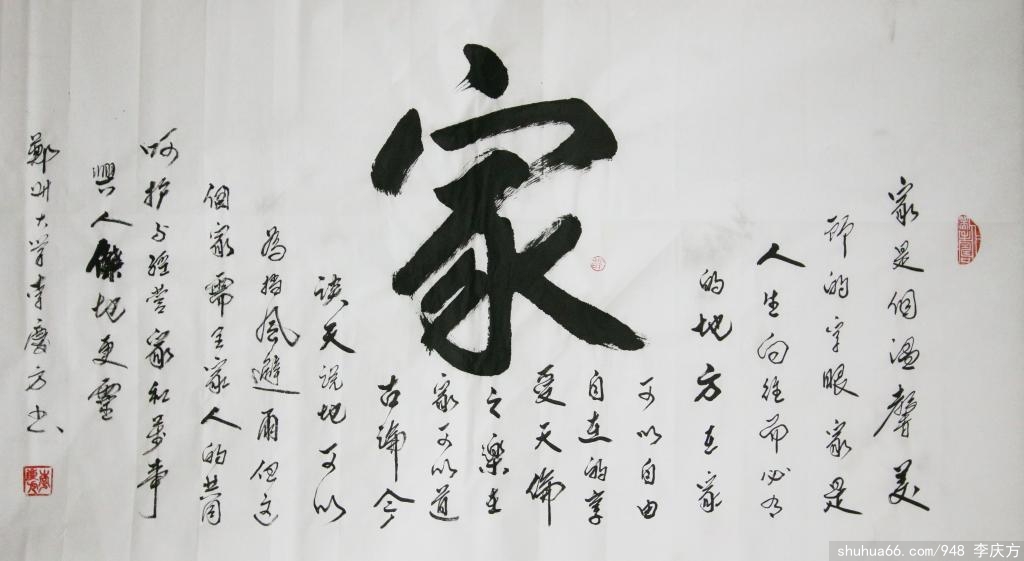 家
家是個溫馨美
丽的字眼家是
人生向往而必有
的地方在家
可以自由
自在的享
受天倫
之樂在
家可以道
古論今
談天说地可以
為挡風避雨但这
個家需全家人的共同
呵护与经营家和萬事
興人傑地更靈
鄭州大学李慶方书
shuhua66.com/948 李庆方